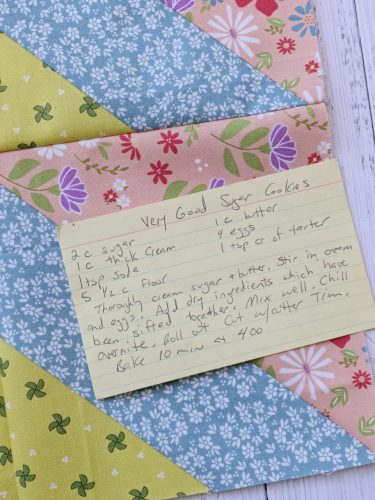 Very Good Sugar Cookies
2 c sugar 1 c butter
1 c thick cream 4 eggs
1 tsp soda 1 tsp cr of tarter
5 1/2 c flour
Thoroughly cream sugar & butter. Stir in cream
and eggs. Add dry ingredients which have
been sifted together. Mix well. Chill
overnite. Roll out Cut w/cutter Trim.
Bake 10 min at 400